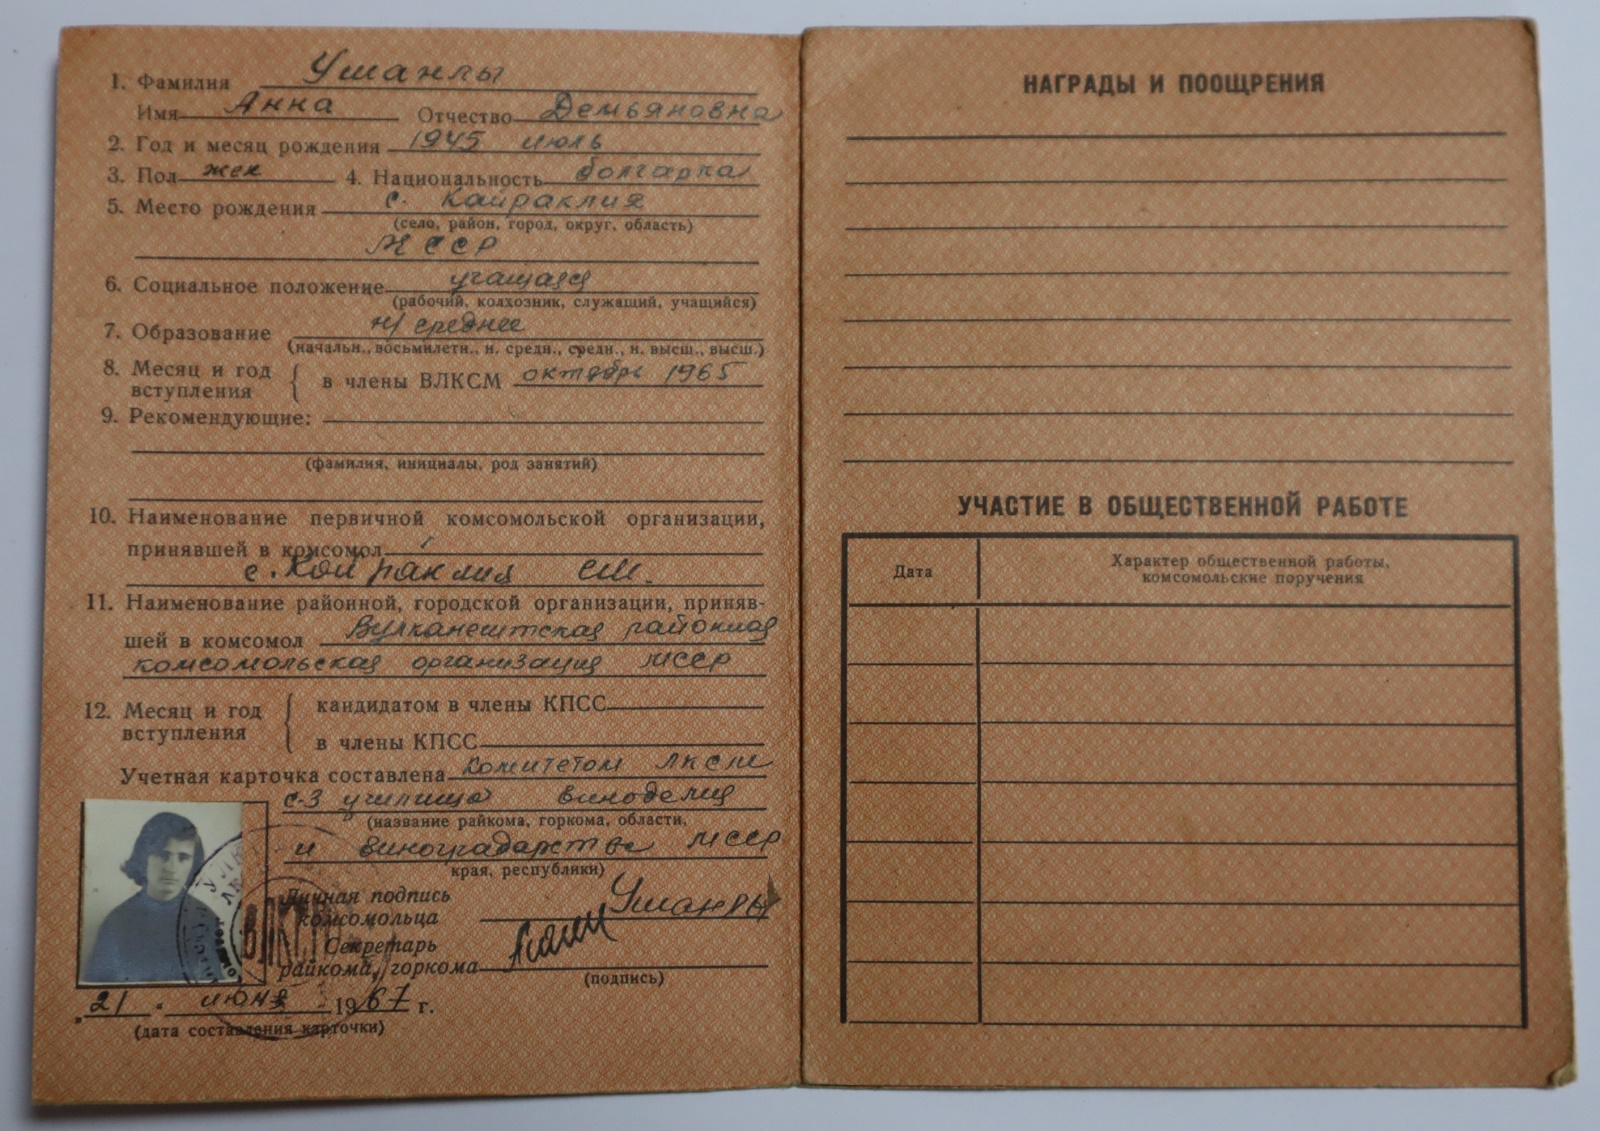 1. Фамилия Ушанлы
Имя Анна Отчество Демьяновна
2. Год и месяц рождения 1945 июль
3. Пол жен 4. Национальность болгарка
5. Место рождения с. Кайраклия
(село, район, город, округ, область)
МССР
6. Социальное положение учащаяся
(рабочий, колхозник, служащий, учащийся)
7. Образование н/среднее
(начальн., восьмилетн., н. средн., средн., н. высш., высш.)
8. Месяц и год вступления в члены ВЛКСМ октябрь 1965
9. Рекомендующие:
(фамилия, инициалы, род занятий)
10. Наименование первичной комсомольской организации,
принявшей в комсомол
с. Кайраклия СШ.
11. Наименование районной, городской организации, приняв-
шей в комсомол Вулканештская районная
комсомольская организация МССР
12. Месяц и год вступления кандидатом в члены КПСС
в члены КПСС
Учетная карточка составлена комитетом ЛКСМ
с-з училища виноделия
(название райкома, горкома, области,
и виноградарства МССР
края, республики)
Личная подпись
комсомольца Ушанлы
Секретарь
райкома, горкома
(подпись)
ВЛКСМ
„21" июня 1967 г.
(дата составления карточки)
НАГРАДЫ И ПООЩРЕНИЯ
УЧАСТИЕ В ОБЩЕСТВЕННОЙ РАБОТЕ
Дата Характер общественной работы,
комсомольские поручения